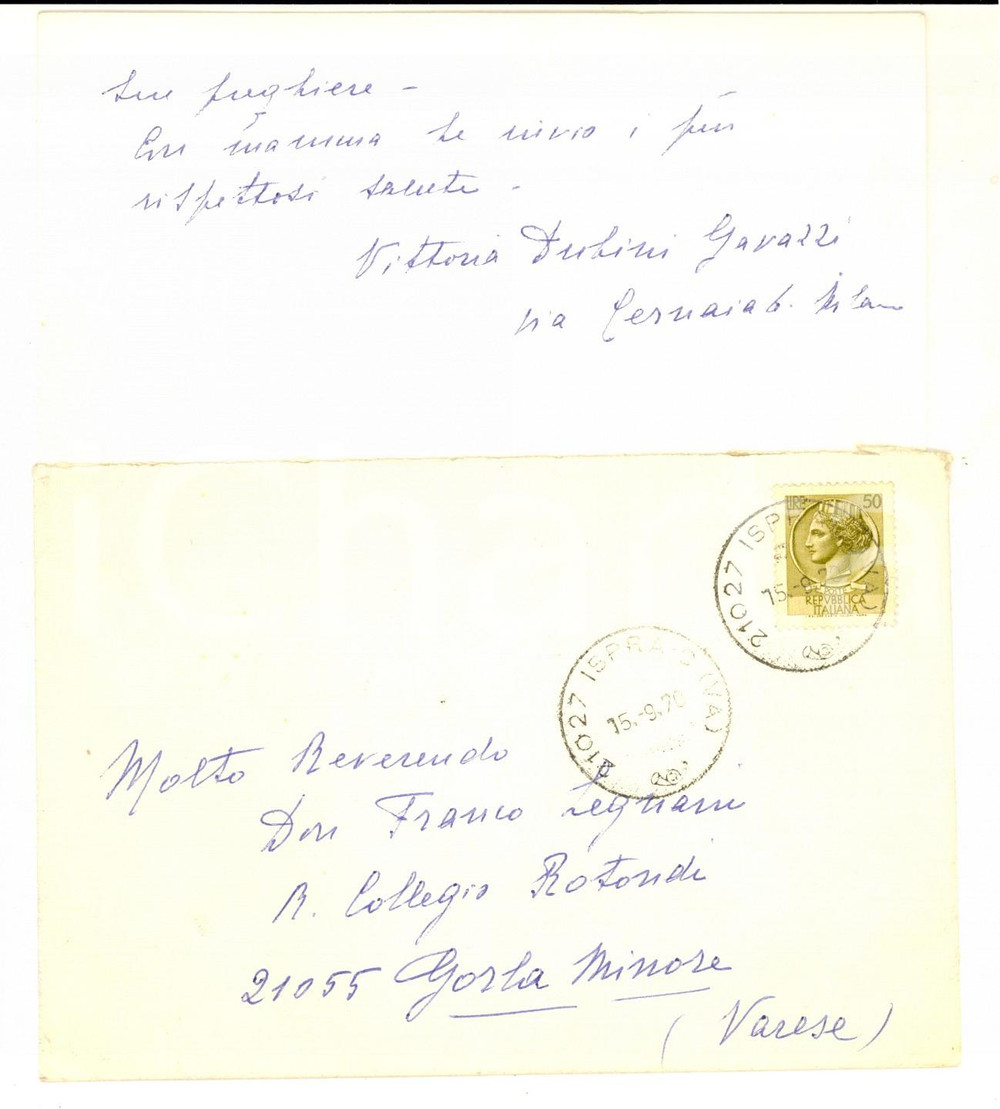 sue preghiere -
Con mamma Le invio i più
rispettosi saluti -
Vittoria Dubini Gavazzi
via Cernaia 6. Milano
LIRE 50
POSTE
REPVBBLICA
ITALIANA
21027 ISPRA (VA)
15.-9.
21027 ISPRA-C (VA)
15.-9.70
Molto Reverendo
Don Franco Legnani
R. Collegio Rotondi
21055 Gorla Minore
(Varese)